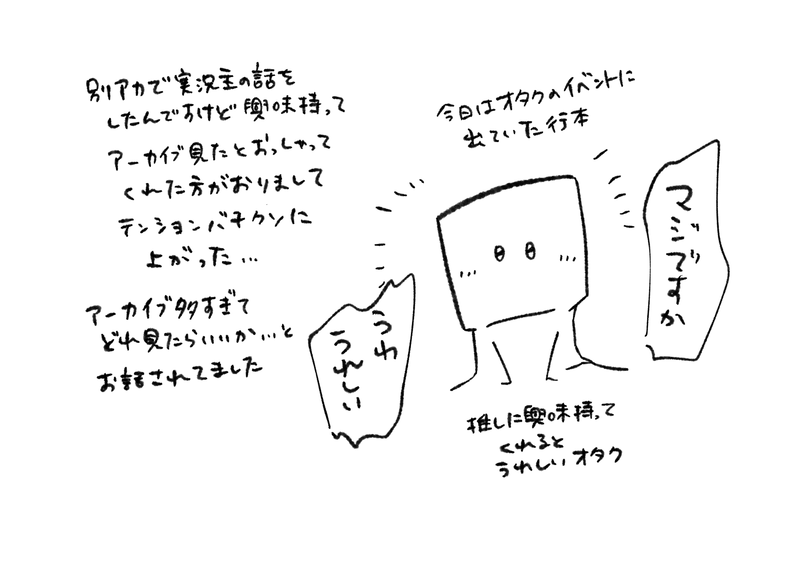 別アカで実況主の話を
したんですけど興味持って
アーカイブ見たとおっしゃって
くれた方がおりまして
テンションバチクソに
上がった…
アーカイブ多すぎて
どれ見たらいいか…と
お話されてました
今日はオタクのイベントに
出ていた行本
マジですか
うわ
うれしい
推しに興味持って
くれると
うれしいオタク